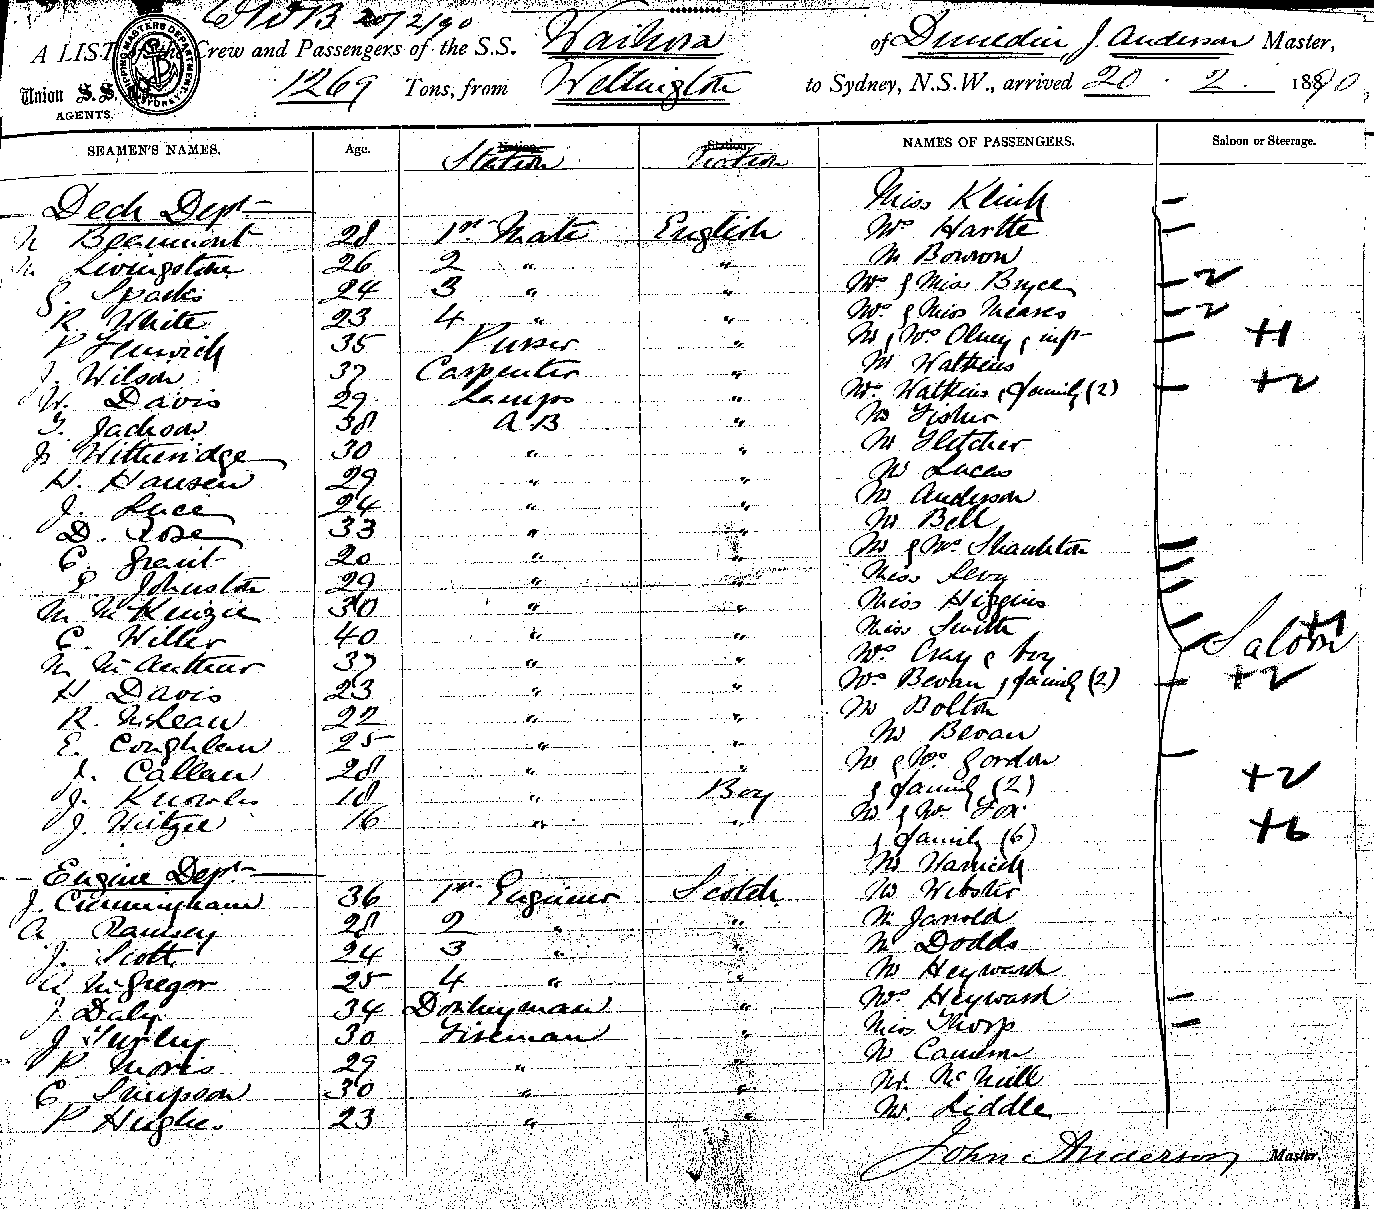 20/2/90
A LIST of the Crew and Passengers of the S.S. Waihora of Dunedin J. Anderson Master,
Union S.S. 1269 Tons, from Wellington to Sydney, N.S.W., arrived 20 . 2 . 1890
AGENTS.
SEAMEN'S NAMES. Age. Station NAMES OF PASSENGERS. Saloon or Steerage.
Deck Dept Miss
Beaumont 28 1st Mate English Mrs Hartte
Livingstone 26 2 " " Mr Bowron
Sparks 24 3 " " Mrs & Miss Bryce 2
R. White 23 4 " " Mrs & Miss Meares 2
P Fenwick 35 Purser " Mr & Mrs Olney & inft +1
J. Wilson 37 Carpenter " Mr Watkins
W. Davis 29 Lamps " Mrs Watkins & family (2) +2
Jackson 38 A B " Mr Fisher
Witheridge 30 " " Mr Fletcher
H. Hansen 29 " " Mr Lucas
J. Luce 24 " " Mr Anderson
D. Rose 33 " " Mr Bell
C. Grant 20 " " Mr & Mrs
E. Johnston 29 " " Miss Levy
M McKenzie 30 " " Miss Higgins
C. Witter 40 " " Miss Smith Saloon +1
McArthur 37 " " Mrs Cray & boy
H Davis 23 " " Mrs Bevan & family (2) +2
R. McLean 22 " " Mr Bolton
E. Coughlan 25 " " Mr Bevan
J. Callan 28 " " Mr & Mrs Gordon
J. Knowles 18 " Boy & family (2) +2
J. 16 " " Mr & Mrs Fox
& family (6) +6
Engine Dept Mr
J. Cunningham 36 1st Engineer Scotch Mr Webster
A Ramsey 28 2 " " Mr Jarrold
J. Scott 24 3 " " Mr Dodds
A McGregor 25 4 " " Mr Heyward
J Daly 34 Donkeyman " Mrs Heyward
J 30 Fireman " Miss Thorp
P Morris 29 " " Mr Cameron
C Simpson 30 " " Mr McNeill
P Hughes 23 " " Mr Liddle
John Anderson Master.